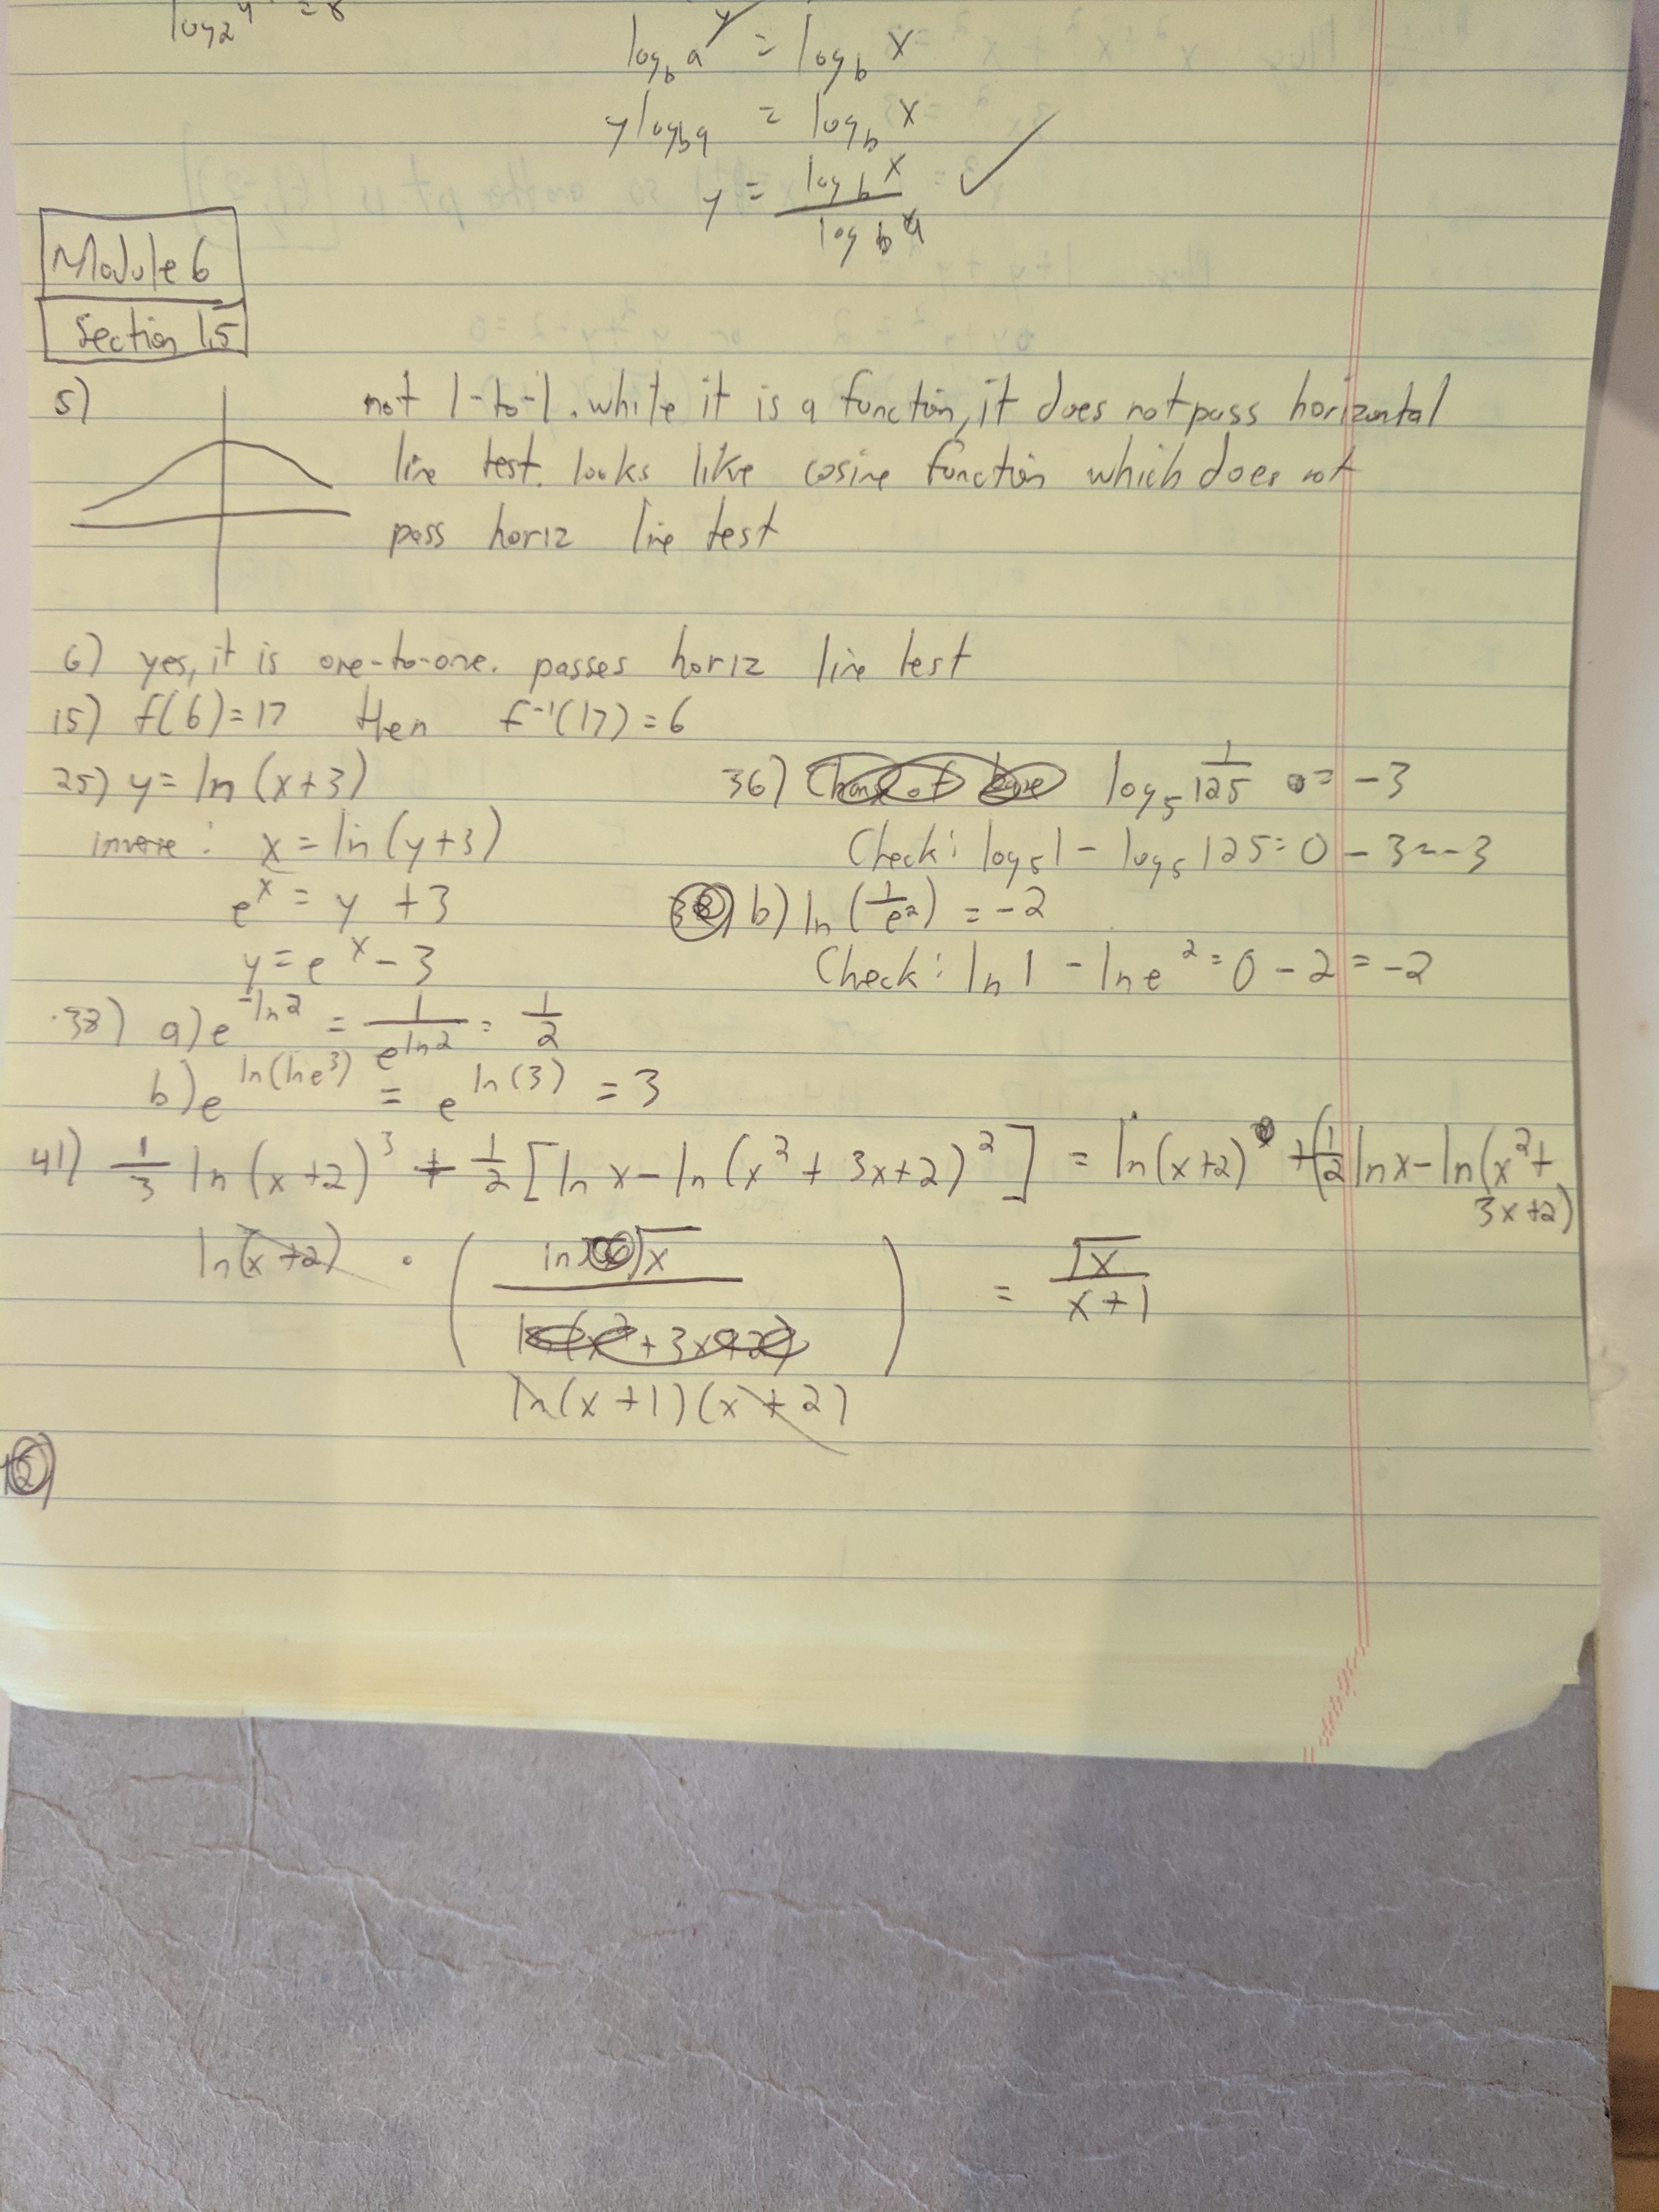 log₂ʸ = 8
log_b aʸ = log_b x
y log_b a = log_b x
y = log_b x / log_b a ✓
Module 6
Section 1.5
5) not 1-to-1. while it is a function, it does not pass horizontal
line test. looks like cosine function which does not
pass horiz line test
6) yes, it is one-to-one. passes horiz line test
15) f(6)=17 then f⁻¹(17)=6
25) y = ln(x+3)
inverse: x = ln(y+3)
eˣ = y + 3
y = eˣ - 3
36) log₅ 1/125 = -3
Check: log₅1 - log₅125 = 0 - 3 = -3
b) ln(1/e²) = -2
Check: ln 1 - ln e² = 0 - 2 = -2
38) a) e^(-ln2) = 1/e^(ln2) = 1/2
b) e^(ln(lne³)) = e^(ln(3)) = 3
41) 1/3 ln(x+2)³ + 1/2 [ln x - ln(x² + 3x+2)²] = ln(x+2) + (1/2 ln x - ln(x² +
3x+2)
ln(x+2) · ( ln √x / ln(x+1)(x+2) ) = √x / x+1